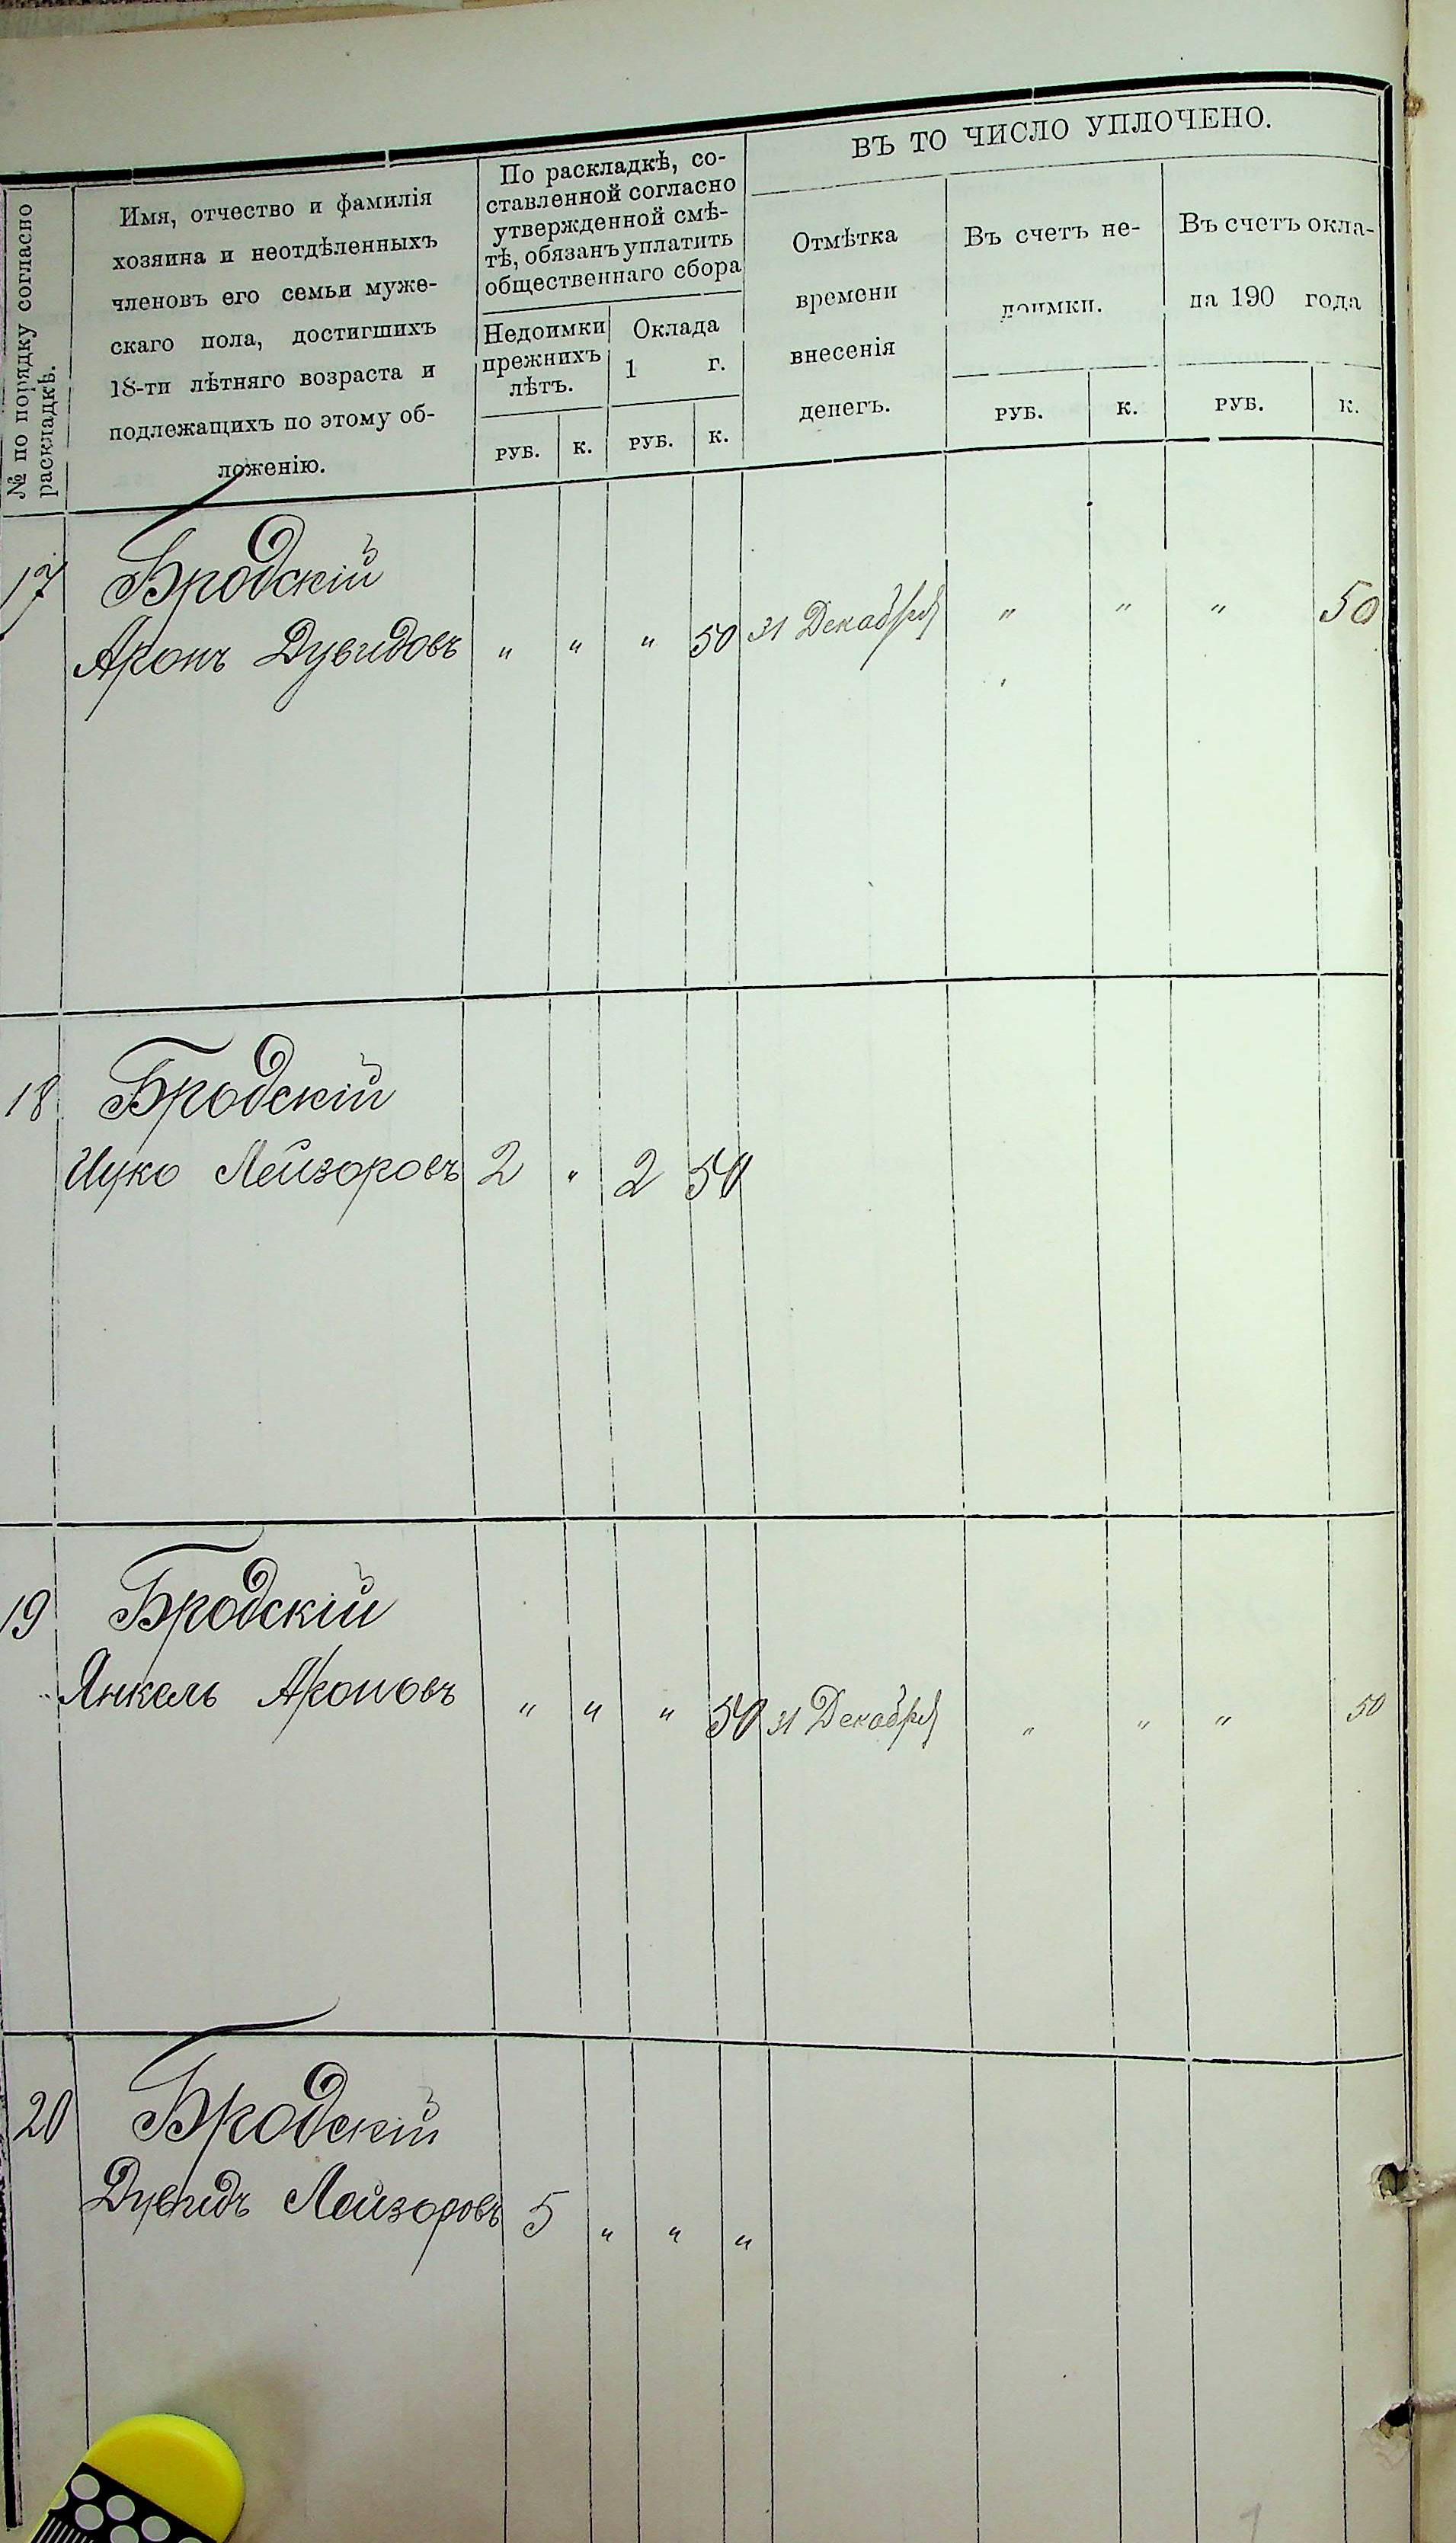 № по порядку согласно
раскладкѣ.
Имя, отчество и фамилія
хозяина и неотдѣленныхъ
членовъ его семьи муже-
скаго пола, достигшихъ
18-ти лѣтняго возраста и
подлежащихъ по этому об-
ложенію.
По раскладкѣ, со-
ставленной согласно
утвержденной смѣ-
тѣ, обязанъ уплатить
общественнаго сбора
Недоимки
прежнихъ
лѣтъ.
Оклада
1 г.
РУБ. К. РУБ. К.
ВЪ ТО ЧИСЛО УПЛОЧЕНО.
Отмѣтка
времени
внесенія
денегъ.
Въ счетъ не-
доимки.
Въ счетъ окла-
да 190 года
РУБ. К. РУБ. К.
17 Бродскій
Аронъ Дувидовъ " " " 50 31 Декабря " " " 50
18 Бродскій
Ицко Лейзоровъ 2 " 2 50
19 Бродскій
Янкель Ароновъ " " " 50 31 Декабря " " " 50
20 Бродскій
Дувидъ Лейзоровъ 5 " " "